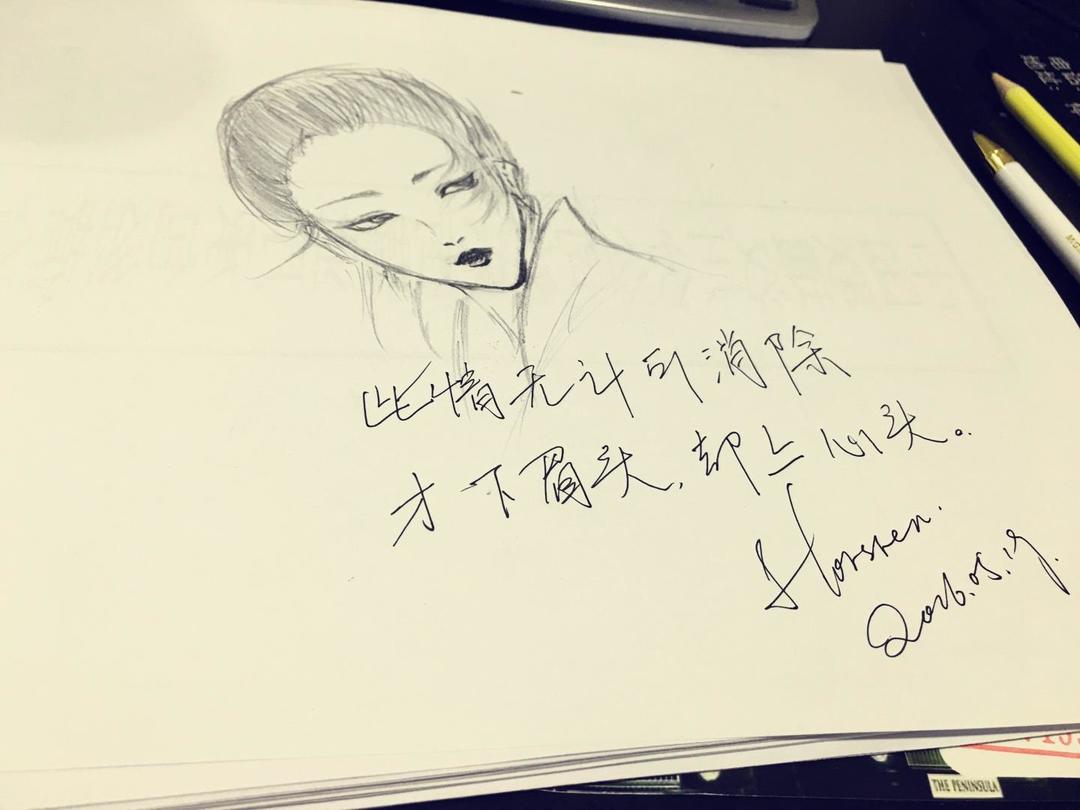 此情无计可消除
才下眉头，却上心头。
Horsten.
2016.05.19.
THE PENINSULA